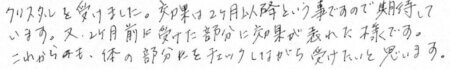 クリスタルを受けました。効果は2ヶ月以降という事ですので期待して
います。又、2ヶ月前に受けた部分に効果が表れた様です。
これからも、体の部分をチェックしながら受けたいと思います。